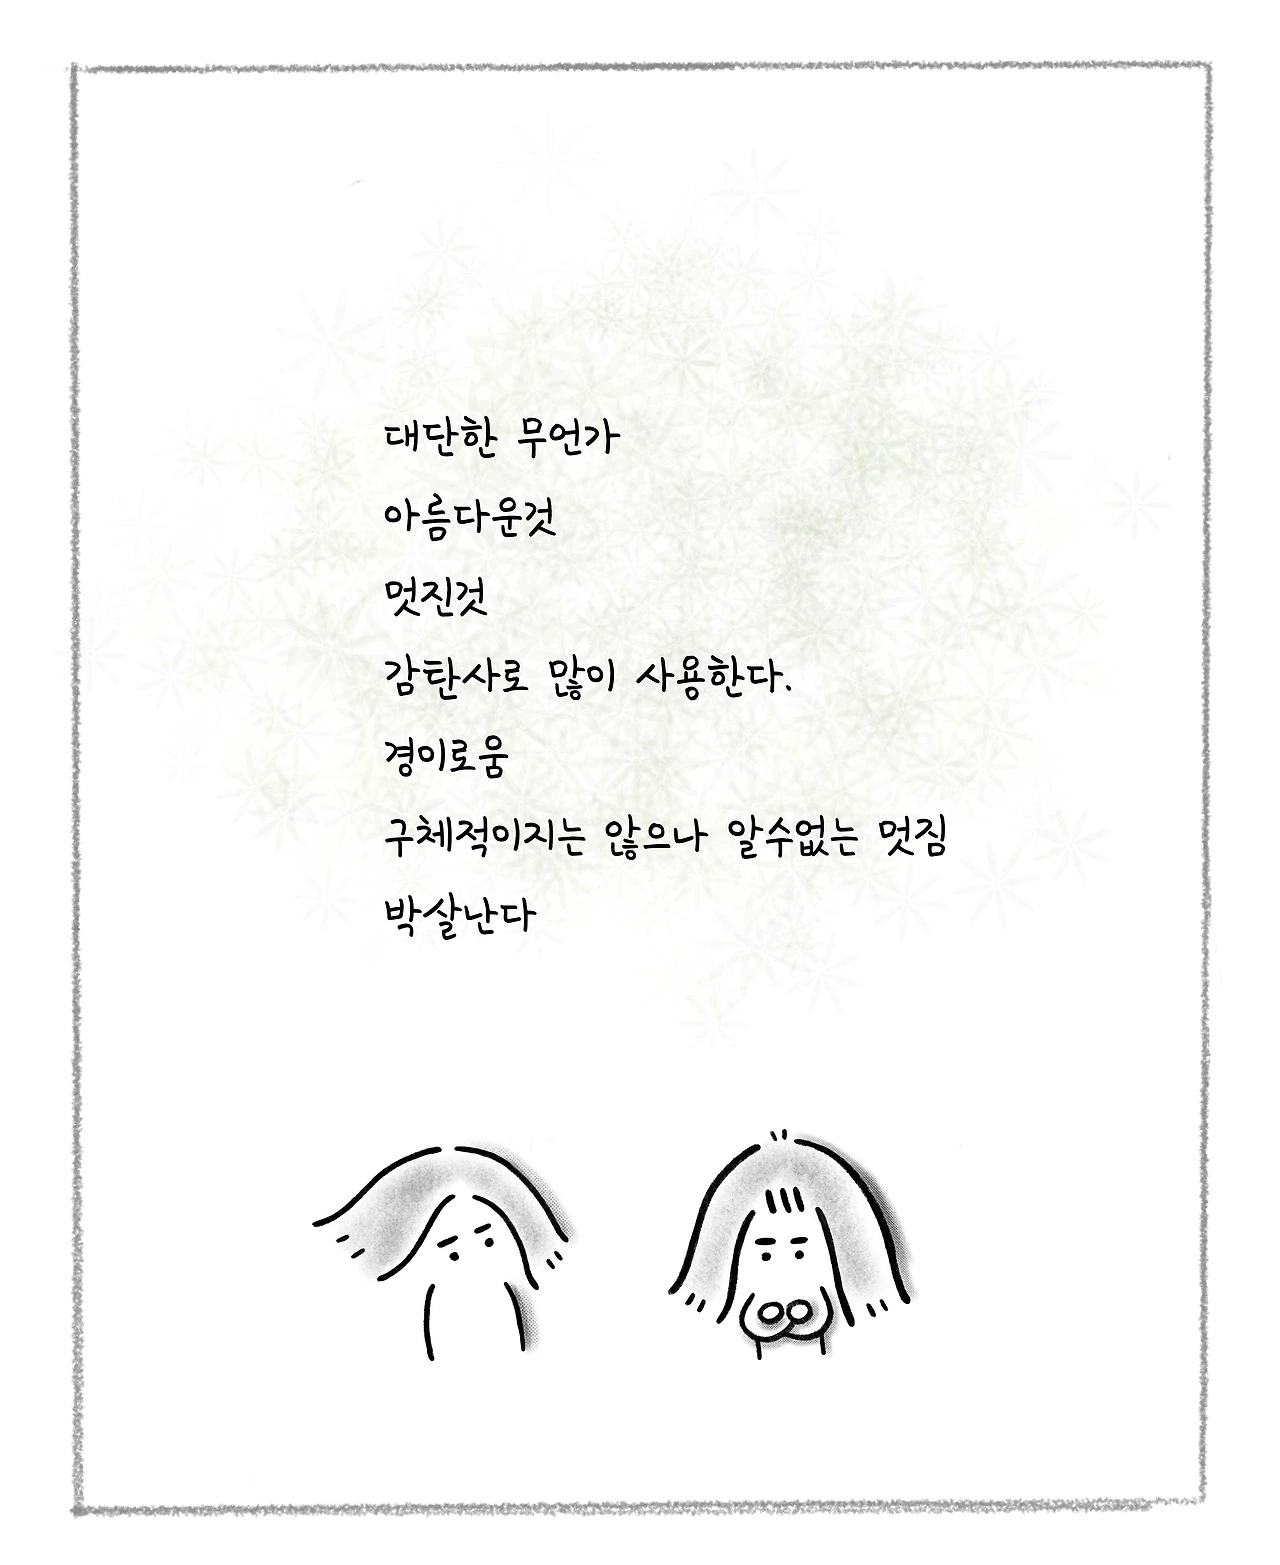 대단한 무언가
아름다운것
멋진것
감탄사로 많이 사용한다.
경이로움
구체적이지는 않으나 알수없는 멋짐
박살난다